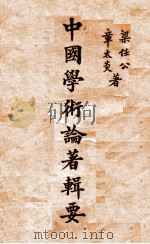 梁任公
章太炎 著
中國學術論著輯要
www.moyi365.com